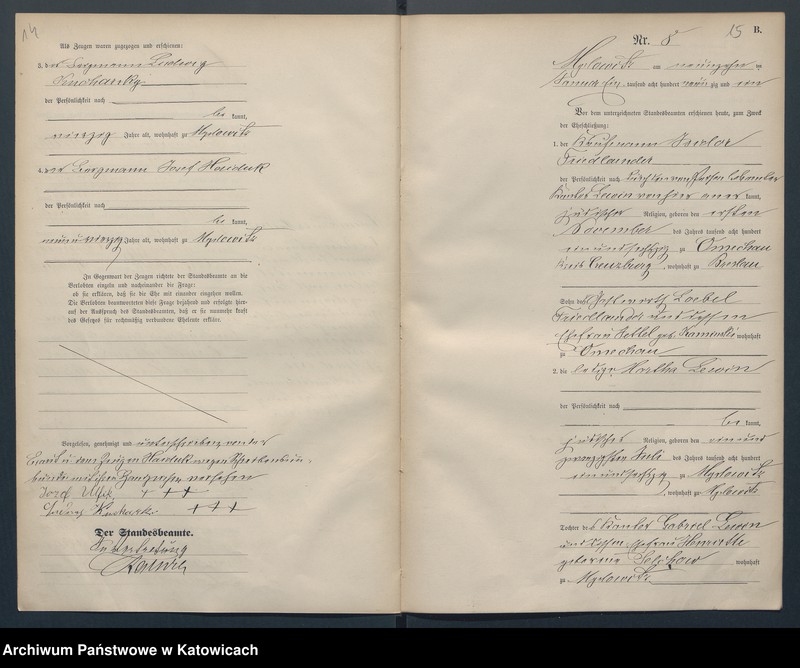 14
Als Zeugen waren zugezogen und erschienen:
3. der Bergmann Ludwig
der Persönlichkeit nach
be kannt,
vierzig Jahre alt, wohnhaft zu Myslowitz
4. der Bergmann Josef Handuk
der Persönlichkeit nach
be kannt,
neunundvierzig Jahre alt, wohnhaft zu Myslowitz
In Gegenwart der Zeugen richtete der Standesbeamte an die
Verlobten einzeln und nacheinander die Frage:
ob sie erklären, daß sie die Ehe mit einander eingehen wollen.
Die Verlobten beantworteten diese Frage bejahend und erfolgte hier-
auf der Ausspruch des Standesbeamten, daß er sie nunmehr kraft
des Gesetzes für rechtmäßig verbundene Eheleute erkläre.
Vorgelesen, genehmigt und unterschrieben von der
Braut u. dem Zeugen Handuk wegen Schreibensun-
kunde mit ihren Handzeichen versehen
Josef +++
+++
Der Standesbeamte.
In Vertretung
15
B.
Nr. 8
Myslowitz am neunzehn ten
Januar Ein tausend acht hundert neun zig und ein
Vor dem unterzeichneten Standesbeamten erschienen heute, zum Zweck
der Eheschließung:
1. der Kaufmann Isidor
Friedlaender
der Persönlichkeit nach durch den von Person bekannten
Kantor Lewin von hier aner kannt,
jüdischer Religion, geboren den ersten
November des Jahres tausend acht hundert
einundsechszig zu Omechau
Kreis Creuzburg, wohnhaft zu Breslau
Sohn des Gastwirth Loebel
Friedlaender und dessen
Ehefrau Nettel geb. Kaminski wohnhaft
zu Omechau
2. die ledige Martha Lewin
der Persönlichkeit nach
be kannt,
jüdischer Religion, geboren den einund
zwanzigsten Juli des Jahres tausend acht hundert
einundsechszig zu Myslowitz
, wohnhaft zu Myslowitz
Tochter des Kantor Gabriel Lewin
und dessen Ehefrau Henriette
geborene Selchow wohnhaft
zu Myslowitz
Archiwum Państwowe w Katowicach